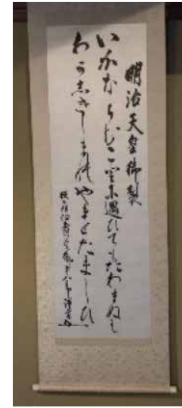 明治天皇御製
いかならむこと尓遇ひてもたわまぬは
わかしきしま能やまとたましひ